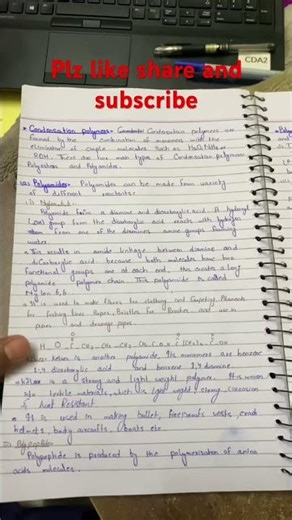 Plz like share and
subscribe
CDA2
* Condensation polymers:- Condensation polymers are
formed by the combination of monomers with the
elimination of simple molecules such as H₂O, NH₃ or
ROH. There are two main types of Condensation polymers
Polyesters and Polyamides.
Polyamides:- Polyamides can be made from variety
of different reactants:-
i) Nylon 6,6:-
Polyamide from a diamine and dicarboxylic acid. A hydroxyl
(OH) group from the dicarboxylic acid reacts with hydrogen
from one of the diamines amine groups forming
water.
This results in amide linkage between diamine and
dicarboxylic acid because both molecules have two
functional groups one at each end, this creates a long
polyamide polymer chain. This polyamide is called
Nylon 6,6.
It is used to make fibres for clothing and carpeting, filaments
for fishing lines, Ropes, Bristles for Brushes and use in
pipes and drainage pipes.
Kevlar is another polyamide, its monomers are benzene
1-4 dicarboxylic acid and benzene 1,4 diamine.
Kevlar is a strong and light weight polymer. It is woven
into textile materials, which is light weight, strong, corrosion
& heat Resistant
It is used in making bullet, fireproofs vests, crash
helmets, body aircrafts, boats etc.
Polypeptides
Polypeptide is produced by the polymerisation of amino
acids molecules.